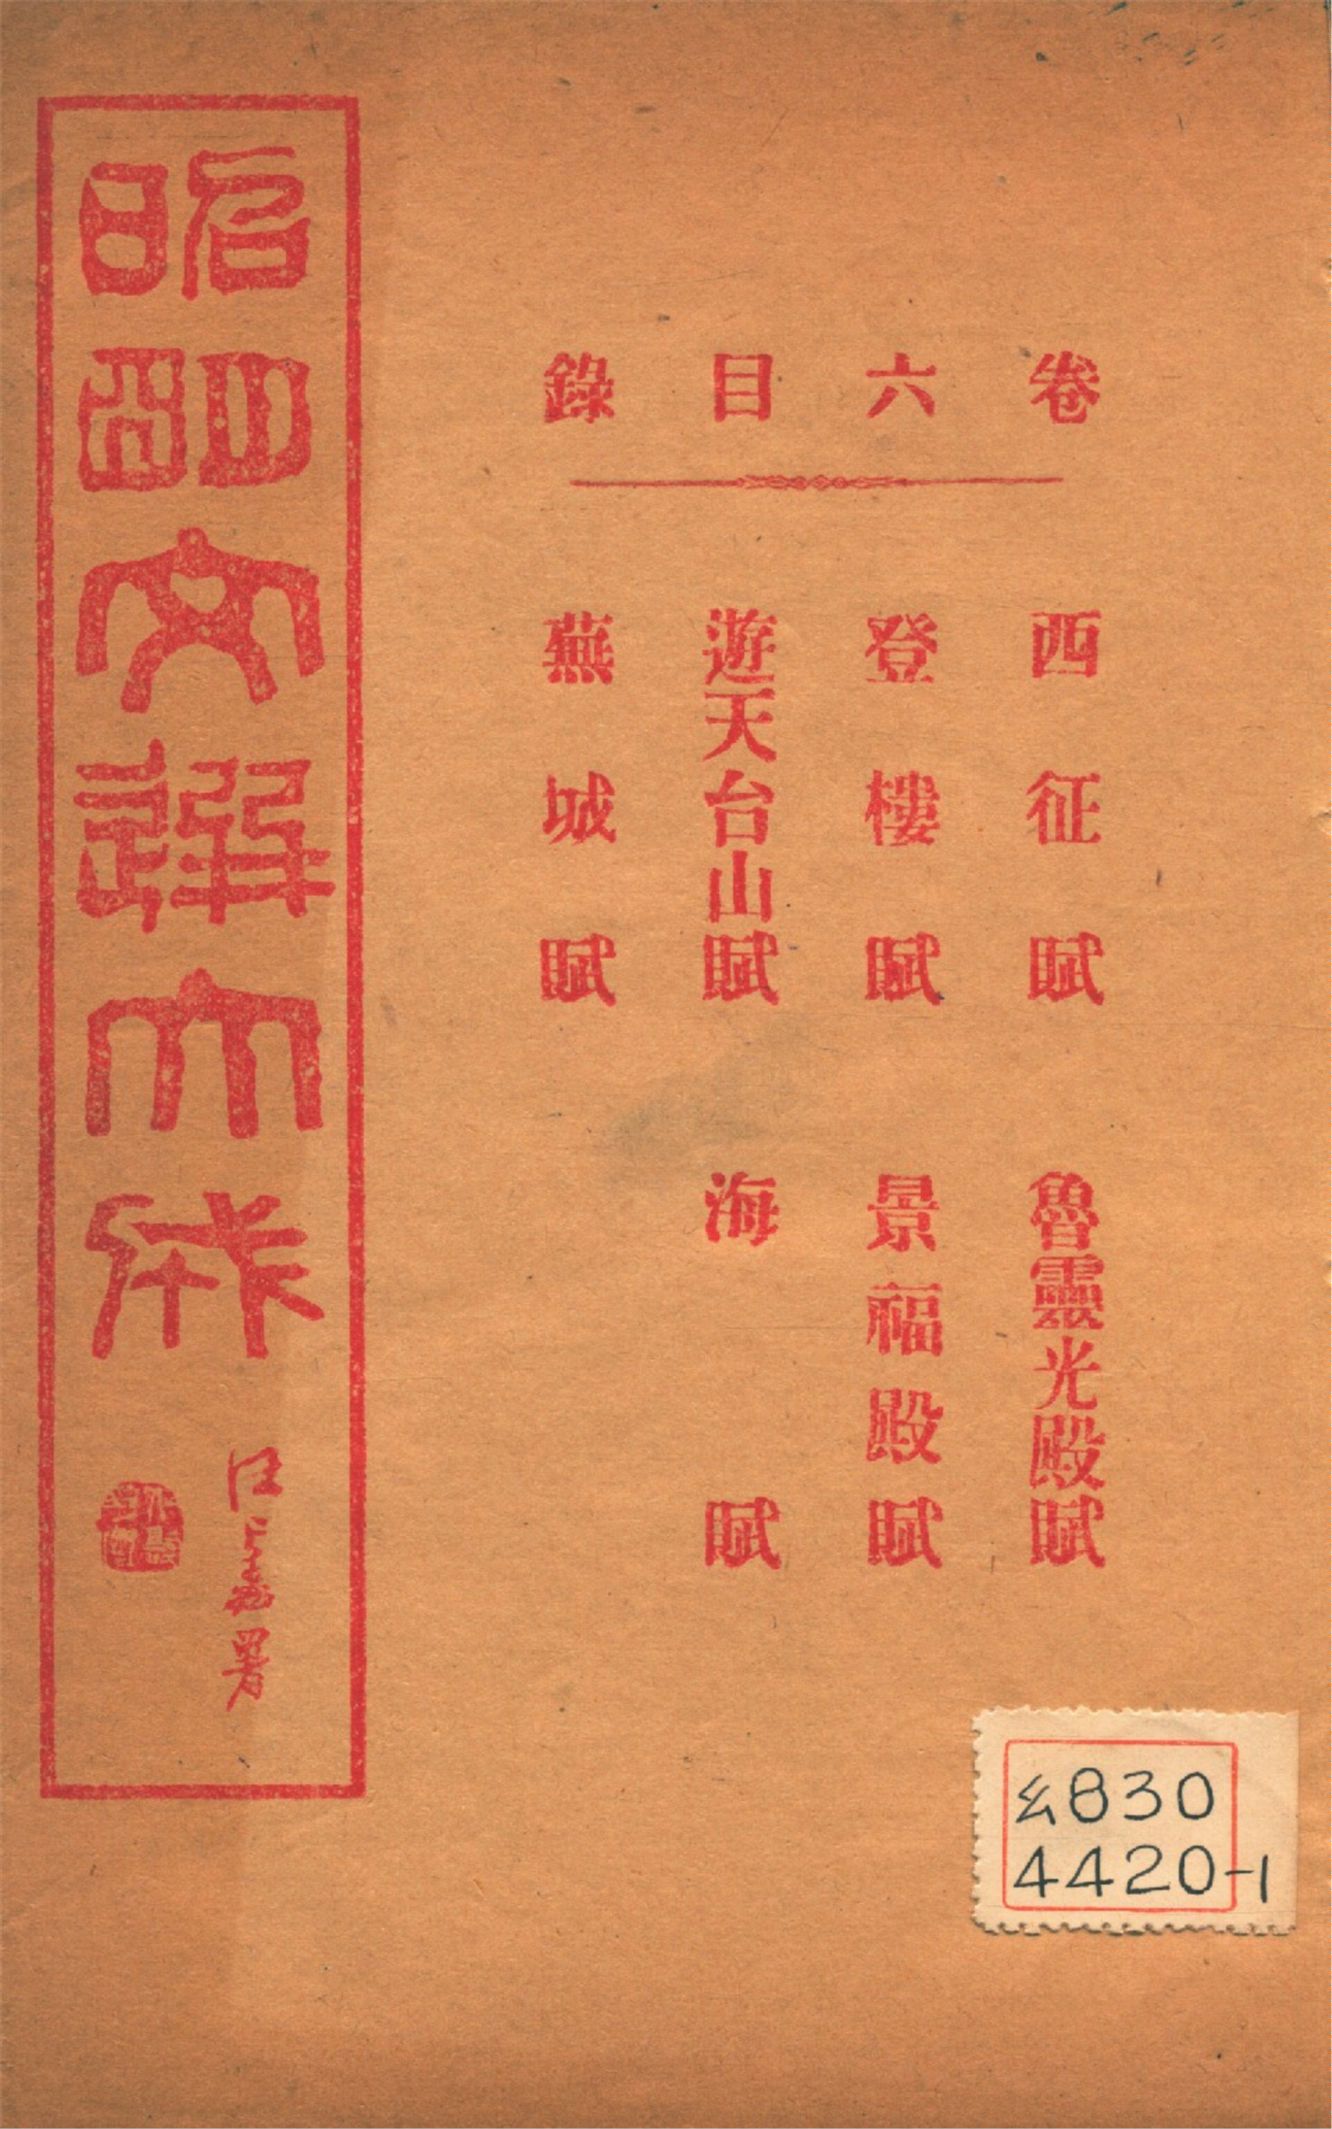 卷六目錄
西征賦
登樓賦
遊天台山賦
蕪城賦
魯靈光殿賦
景福殿賦
海賦
昭明文選大成
汪 署
830
4420-1